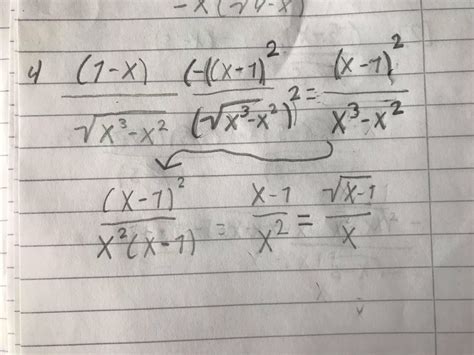 -x(√4-x)
4 (1-x)/√x³-x² (-((x-1)²/(√x³-x²)² = (x-1)²/x³-x²
(x-1)²/x²(x-1) = x-1/x² = √x-1/x